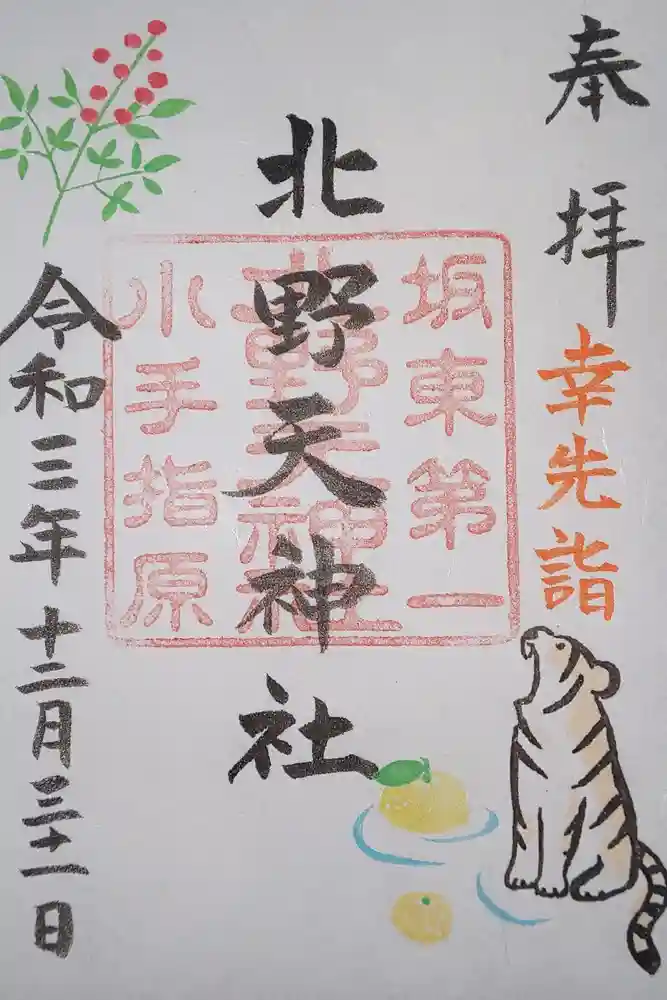 奉拝
幸先詣
北野天神社
坂東第一
北野天神社
小手指原
令和三年十二月三十一日